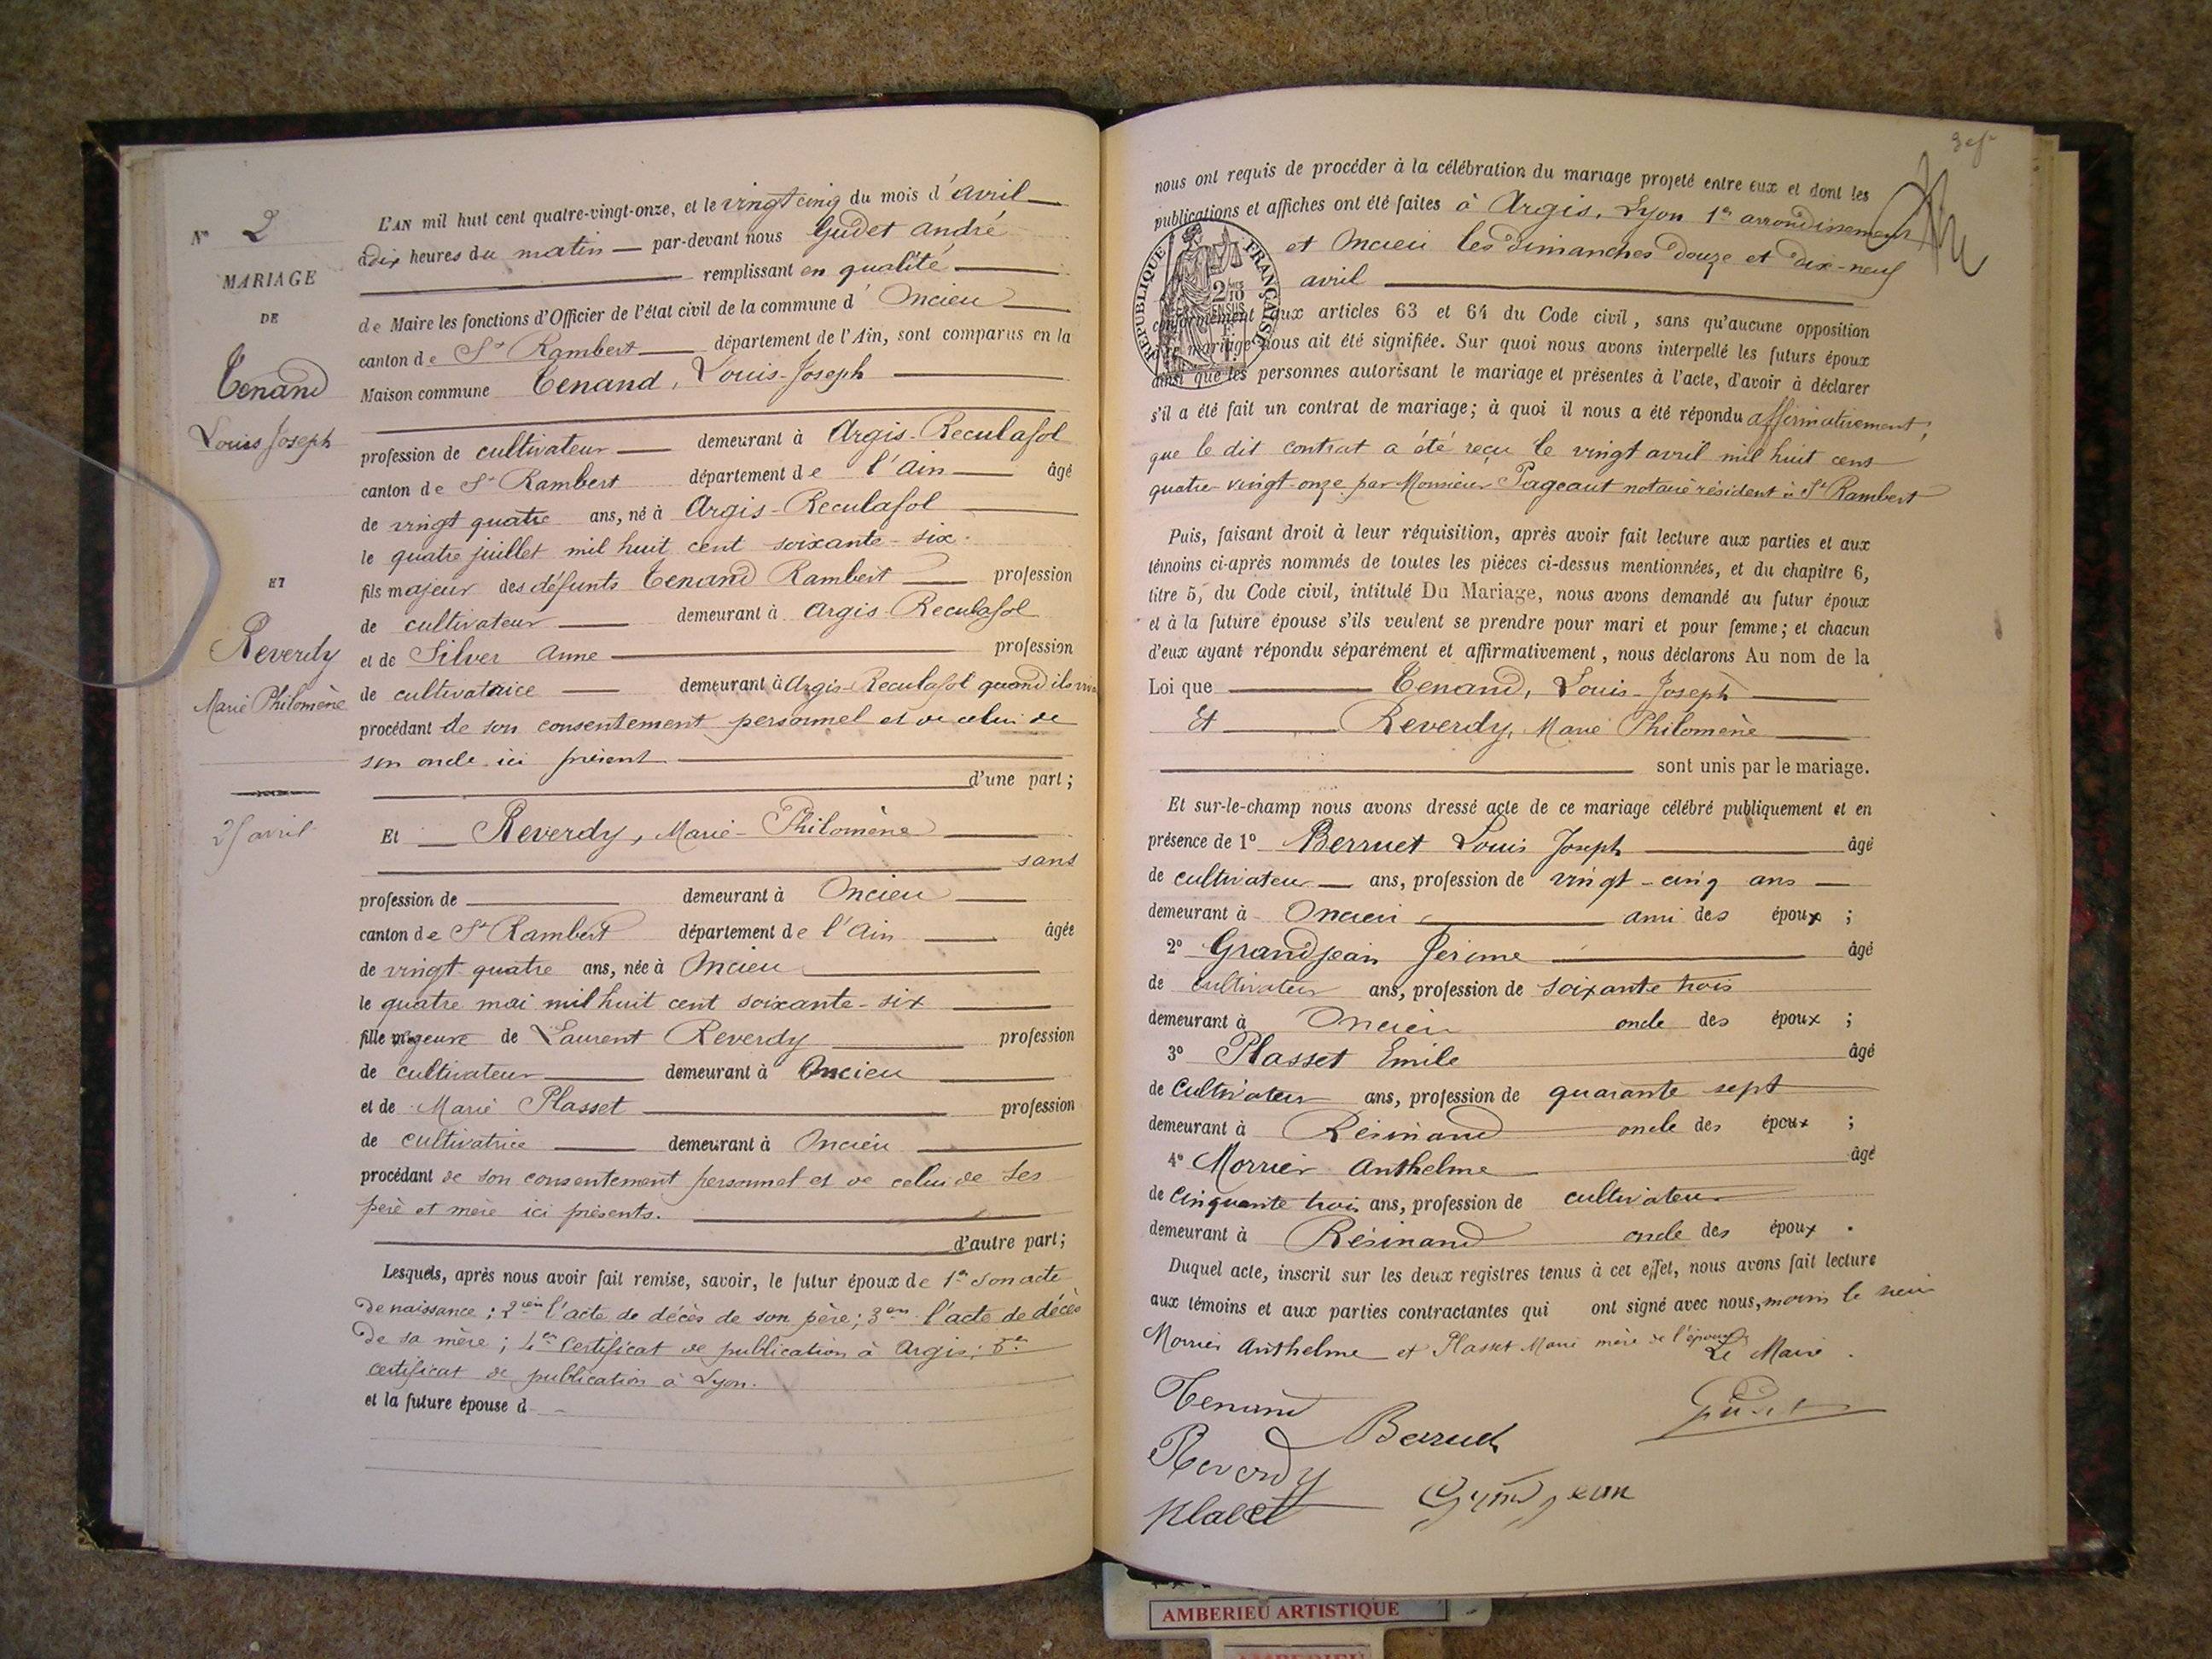 N° 2
MARIAGE
DE
Tenand
Louis Joseph
ET
Reverdy
Marie Philomène
25 avril
L'AN mil huit cent quatre-vingt-onze, et le vingt cinq du mois d'avril
à dix heures du matin par-devant nous Gudet André
remplissant en qualité
de Maire les fonctions d'Officier de l'état civil de la commune d'Oncieu
canton de St Rambert département de l'Ain, sont comparus en la
Maison commune Tenand, Louis-Joseph
profession de cultivateur demeurant à Argis-Reculafol
canton de St Rambert département de l'Ain âgé
de vingt quatre ans, né à Argis-Reculafol
le quatre juillet mil huit cent soixante-six.
fils majeur des défunts Tenand Rambert profession
de cultivateur demeurant à Argis-Reculafol
et de Silver Anne profession
de cultivatrice demeurant à Argis-Reculafol quand ils
procédant de son consentement personnel et de celui de
son oncle ici présent
d'une part;
Et Reverdy, Marie-Philomène
sans
profession de demeurant à Oncieu
canton de St Rambert département de l'Ain âgée
de vingt quatre ans, née à Oncieu
le quatre mai mil huit cent soixante-six
fille majeure de Laurent Reverdy profession
de cultivateur demeurant à Oncieu
et de Marie Plasset profession
de cultivatrice demeurant à Oncieu
procédant de son consentement personnel et de celui de ses
père et mère ici présents.
d'autre part;
Lesquels, après nous avoir fait remise, savoir, le futur époux de 1er son acte
de naissance; 2ièm l'acte de décès de son père; 3em l'acte de décès
de sa mère; 4em certificat de publication à Argis; 5em
certificat de publication à Lyon.
et la future épouse d
nous ont requis de procéder à la célébration du mariage projeté entre eux et dont les
publications et affiches ont été faites à Argis, Lyon 1er arrondissement
et Oncieu les dimanches douze et dix-neuf
avril
REPUBLIQUE FRANÇAISE
conformément aux articles 63 et 64 du Code civil, sans qu'aucune opposition
mariage nous ait été signifiée. Sur quoi nous avons interpellé les futurs époux
ainsi que les personnes autorisant le mariage et présentes à l'acte, d'avoir à déclarer
s'il a été fait un contrat de mariage; à quoi il nous a été répondu affirmativement,
que le dit contrat a été reçu le vingt avril mil huit cent
quatre-vingt-onze par Monsieur Pageaut notaire résident à St Rambert
Puis, faisant droit à leur réquisition, après avoir fait lecture aux parties et aux
témoins ci-après nommés de toutes les pièces ci-dessus mentionnées, et du chapitre 6,
titre 5, du Code civil, intitulé Du Mariage, nous avons demandé au futur époux
et à la future épouse s'ils veulent se prendre pour mari et pour femme; et chacun
d'eux ayant répondu séparément et affirmativement, nous déclarons Au nom de la
Loi que Tenand, Louis-Joseph
Et Reverdy, Marie Philomène
sont unis par le mariage.
Et sur-le-champ nous avons dressé acte de ce mariage célébré publiquement et en
présence de 1° Berruet Louis Joseph âgé
de cultivateur ans, profession de vingt-cinq ans
demeurant à Oncieu ami des époux ;
2° Grandjean Jérime âgé
de cultivateur ans, profession de soixante trois
demeurant à Oncieu oncle des époux ;
3° Plasset Emile âgé
de cultivateur ans, profession de quarante sept
demeurant à Résinand oncle des époux ;
4° Morrier Anthelme âgé
de cinquante trois ans, profession de cultivateur
demeurant à Résinand oncle des époux .
Duquel acte, inscrit sur les deux registres tenus à cet effet, nous avons fait lecture
aux témoins et aux parties contractantes qui ont signé avec nous, moins le sieur
Morrier Anthelme et Plasset Marie mère de l'épouse
Le Maire.
Tenand
Berruet
Gudet
Reverdy
Grandjean
Placet
AMBERIEU ARTISTIQUE
AMBERIEU